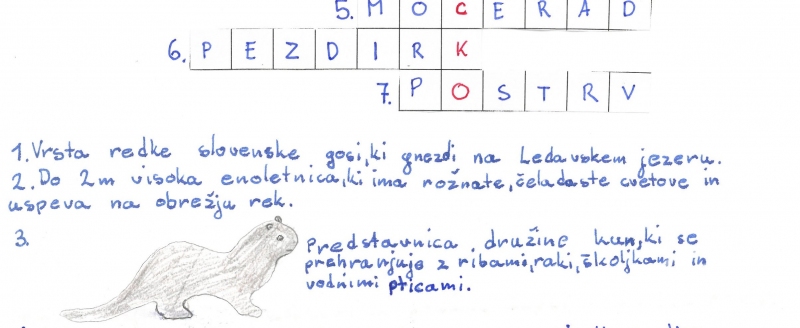 5. MOČERAD
6. PEZDIRK
7. POSTRV
1. Vrsta redke slovenske gosi, ki gnezdi na Ledavskem jezeru.
2. Do 2m visoka enoletnica, ki ima rožnate, čeladaste cvetove in
uspeva na obrežju rek.
3.
Predstavnica družine kun, ki se
prehranjuje z ribami, raki, školjkami in
vodnimi pticami.